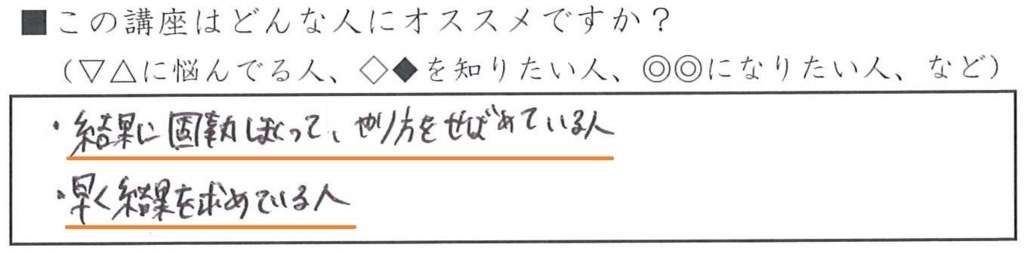 ■この講座はどんな人にオススメですか?
(▽△に悩んでる人、◇◆を知りたい人、◎◎になりたい人、など)
・結果に固執しまくって、やり方をせばめている人
・早く結果を求めている人